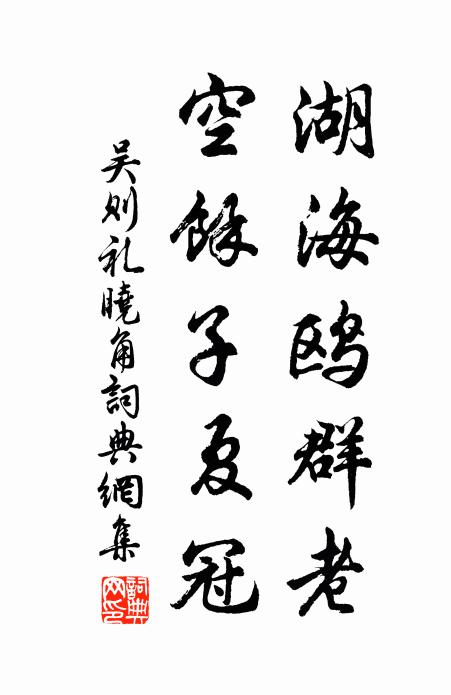 湖海鸥群老
空餘子夏冠
吴则礼曉角詞典網集
詞典网印